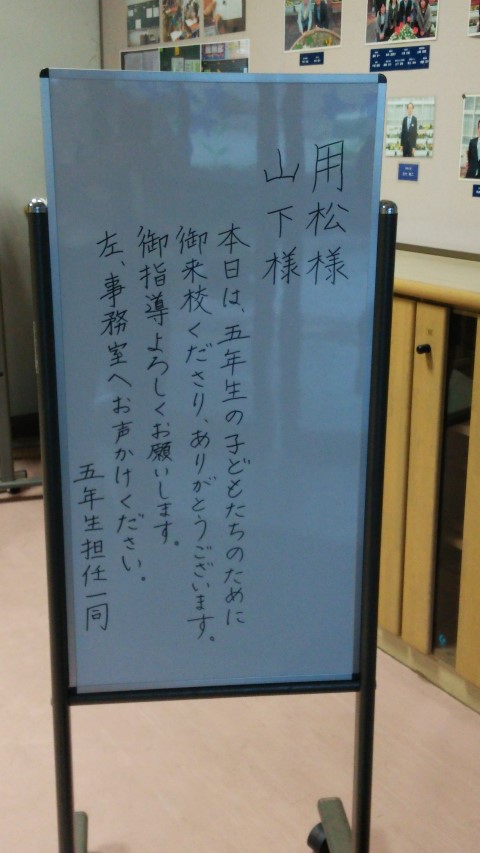 用松様
山下様
本日は、五年生の子どもたちのために
御来校くださり、ありがとうございます。
御指導よろしくお願いします。
左、事務室へお声かけください。
五年生担任一同